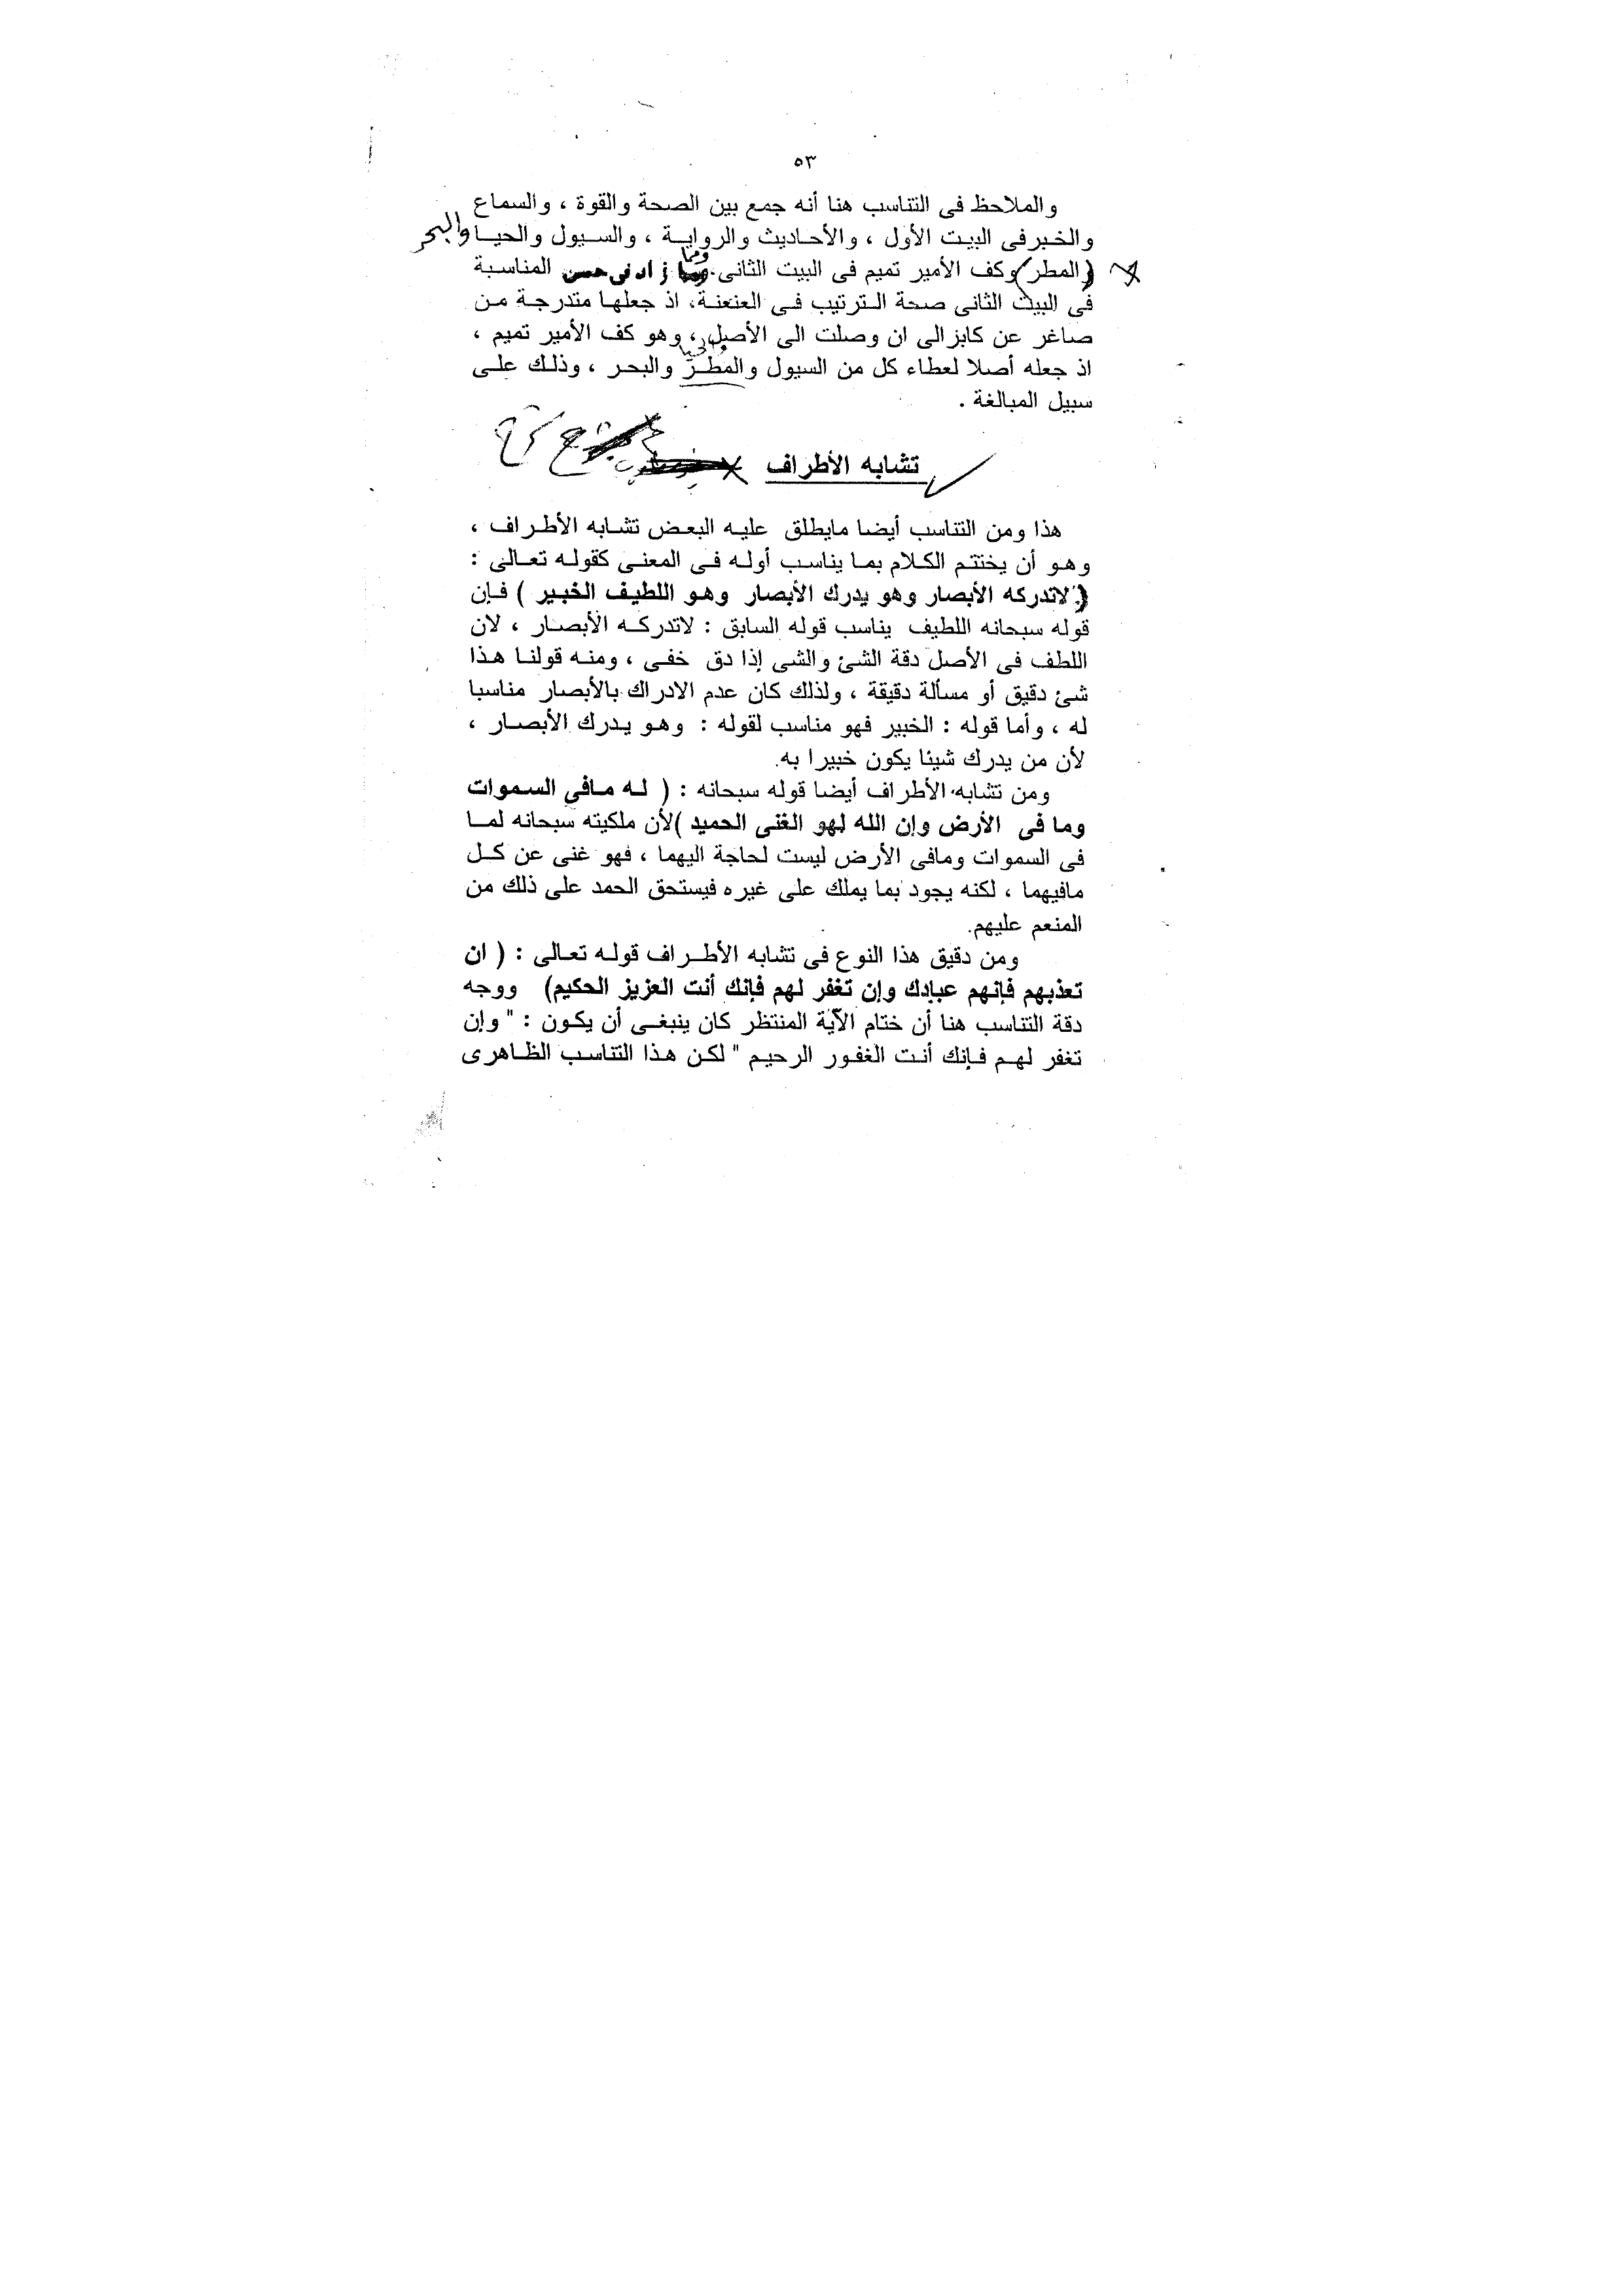 ٥٣
والملاحظ فى التناسب هنا أنه جمع بين الصحة والقوة ، والسماع
والخبرفى البيت الأول ، والأحاديث والرواية ، والسيول والحيا والبحر
(المطر) وكف الأمير تميم فى البيت الثانى. ومما زاد فى حسن المناسبة
فى البيت الثانى صحة الترتيب فى العنعنة، اذ جعلها متدرجة من
صاغر عن كابزالى ان وصلت الى الأصل، وهو كف الأمير تميم ،
اذ جعله أصلا لعطاء كل من السيول والمطر والبحر ، وذلك على
سبيل المبالغة .
تشابه الأطراف
هذا ومن التناسب أيضا مايطلق عليه البعض تشابه الأطراف ،
وهو أن يختتم الكلام بما يناسب أوله فى المعنى كقوله تعالى :
( لاتدركه الأبصار وهو يدرك الأبصار وهو اللطيف الخبير ) فإن
قوله سبحانه اللطيف يناسب قوله السابق : لاتدركه الأبصار ، لان
اللطف فى الأصل دقة الشئ والشى إذا دق خفى ، ومنه قولنا هذا
شئ دقيق أو مسألة دقيقة ، ولذلك كان عدم الادراك بالأبصار مناسبا
له ، وأما قوله : الخبير فهو مناسب لقوله : وهو يدرك الأبصار ،
لأن من يدرك شيئا يكون خبيرا به.
ومن تشابه الأطراف أيضا قوله سبحانه : ( له مافى السموات
وما فى الأرض وإن الله لهو الغنى الحميد )لأن ملكيته سبحانه لما
فى السموات ومافى الأرض ليست لحاجة اليهما ، فهو غنى عن كل
مافيهما ، لكنه يجود بما يملك على غيره فيستحق الحمد على ذلك من
المنعم عليهم.
ومن دقيق هذا النوع فى تشابه الأطراف قوله تعالى : ( ان
تعذبهم فإنهم عبادك وإن تغفر لهم فإنك أنت العزيز الحكيم) ووجه
دقة التناسب هنا أن ختام الآية المنتظر كان ينبغى أن يكون : " وإن
تغفر لهم فإنك أنت الغفور الرحيم " لكن هذا التناسب الظاهرى